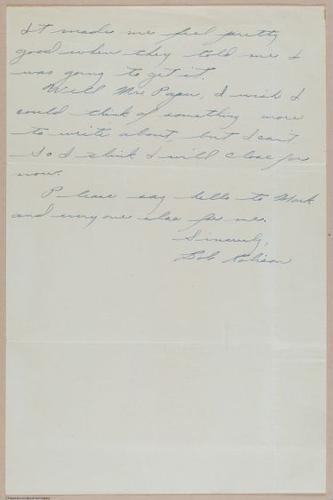 It made me feel pretty
good when they told me I
was going to get it.
Well Mrs Papa, I wish I
could think of something more
to write about, but I can't
so I think I will close for
now.
Please say hello to Mark
and everyone else for me.
Sincerely,
Bob